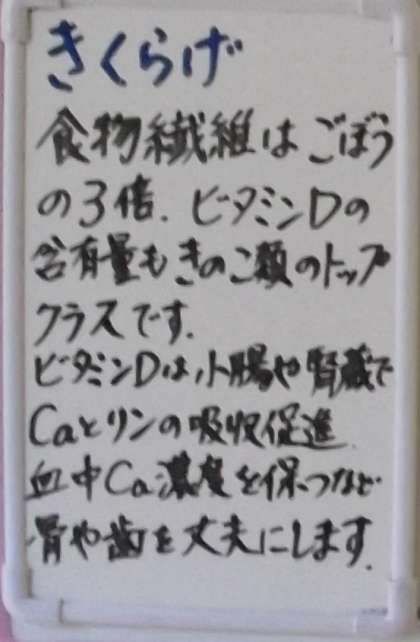 きくらげ
食物繊維はごぼう
の3倍.ビタミンDの
含有量もきのこ類のトップ
クラスです.
ビタミンDは小腸や腎臓で
Caとリンの吸収促進.
血中Ca濃度を保つなど
骨や歯を丈夫にします.